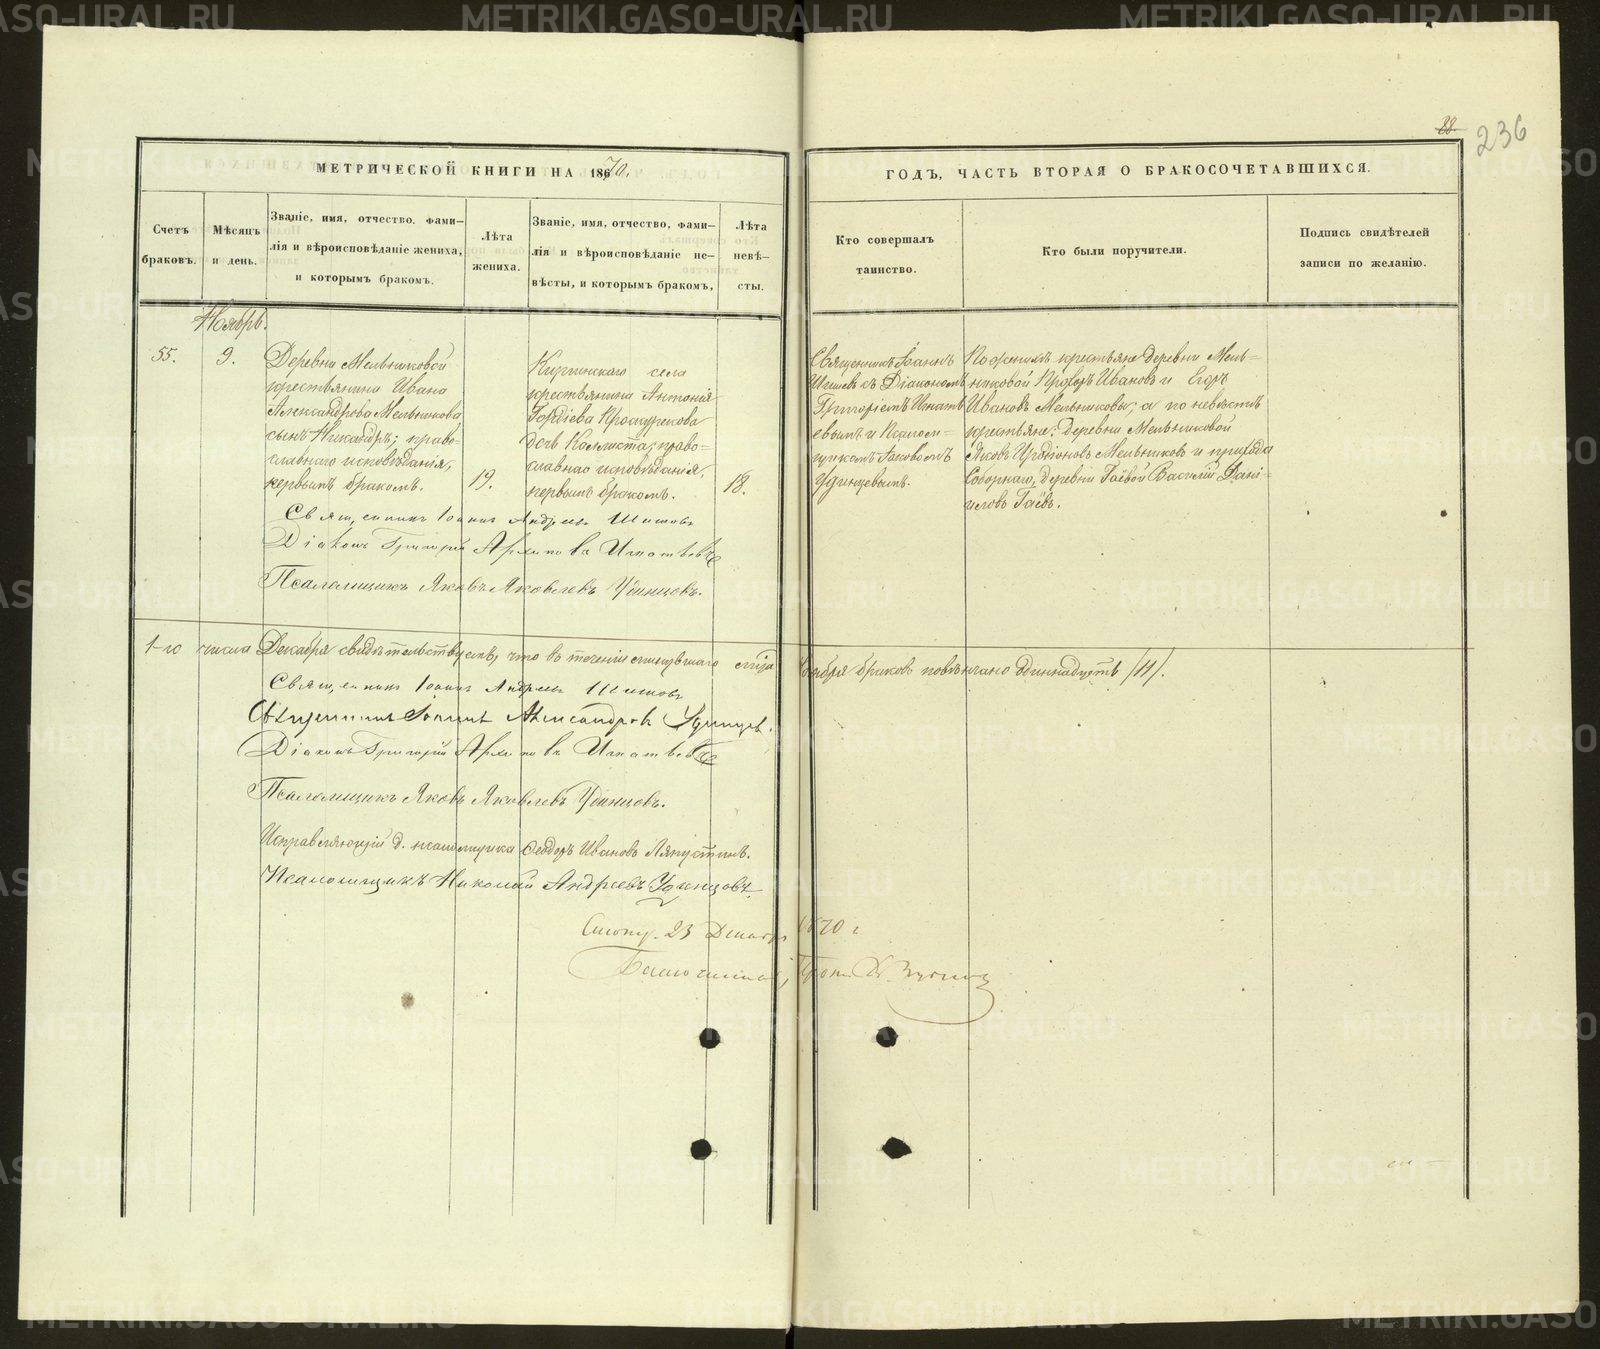 88.
236
МЕТРИЧЕСКОЙ КНИГИ НА 1870.
ГОДЪ, ЧАСТЬ ВТОРАЯ О БРАКОСОЧЕТАВШИХСЯ.
Счетъ браковъ.
Мѣсяцъ и день.
Званіе, имя, отчество, фами-
лія и вѣроисповѣданіе жениха,
и которымъ бракомъ.
Лѣта жениха.
Званіе, имя, отчество, фами-
лія и вѣроисповѣданіе не-
вѣсты, и которымъ бракомъ,
Лѣта невѣ-
сты.
Кто совершалъ
таинство.
Кто были поручители.
Подпись свидѣтелей
записи по желанію.
Ноябрь.
55.
9.
Деревни Мельниковой
крестьянина Ивана
Александрова Мельникова
сынъ Никандръ; право-
славнаго исповѣданія,
первымъ бракомъ.
19.
Киргинскаго села
крестьянина Антонія
Гордіева Прокурекова
дочь Каллиста; право-
славнаго исповѣданія,
первымъ бракомъ.
18.
Священникъ Іоаннъ
Шишевъ съ Діакономъ
Григоріемъ Игнать
евымъ и Псалом-
щикомъ Іаковомъ
Удинцевымъ.
По женихѣ крестьяне деревни Мель-
никовой Прохоръ Ивановъ и Егоръ
Ивановъ Мельниковы; а по невѣстѣ
крестьяне: деревни Мельниковой
Яковъ Иродіоновъ Мельниковъ и прихода
Соборнаго, деревни Гаевой Василій Дані-
иловъ Гаевъ.
Священникъ Іоаннъ Андреевъ Шишовъ
Діаконъ Григорій Архиповъ Игнатьевъ
Псаломщикъ Яковъ Яковлевъ Удинцовъ.
1-го числа Декабря свидѣтельствуемъ, что въ теченіи минувшаго м-ца Ноября браковъ повѣнчано одиннадцать /11/.
Священникъ Іоаннъ Андреевъ Шишовъ
Священникъ Іоаннъ Александровъ Удинцевъ.
Діаконъ Григорій Архиповъ Игнатьевъ
Псаломщикъ Яковъ Яковлевъ Удинцовъ.
Исправляющій д. псаломщика Ѳеодоръ Ивановъ Ляпустинъ.
Псаломщикъ Николай Андреевъ Удинцовъ.
23 Декабря 1870 г
Благочинный, Прот.